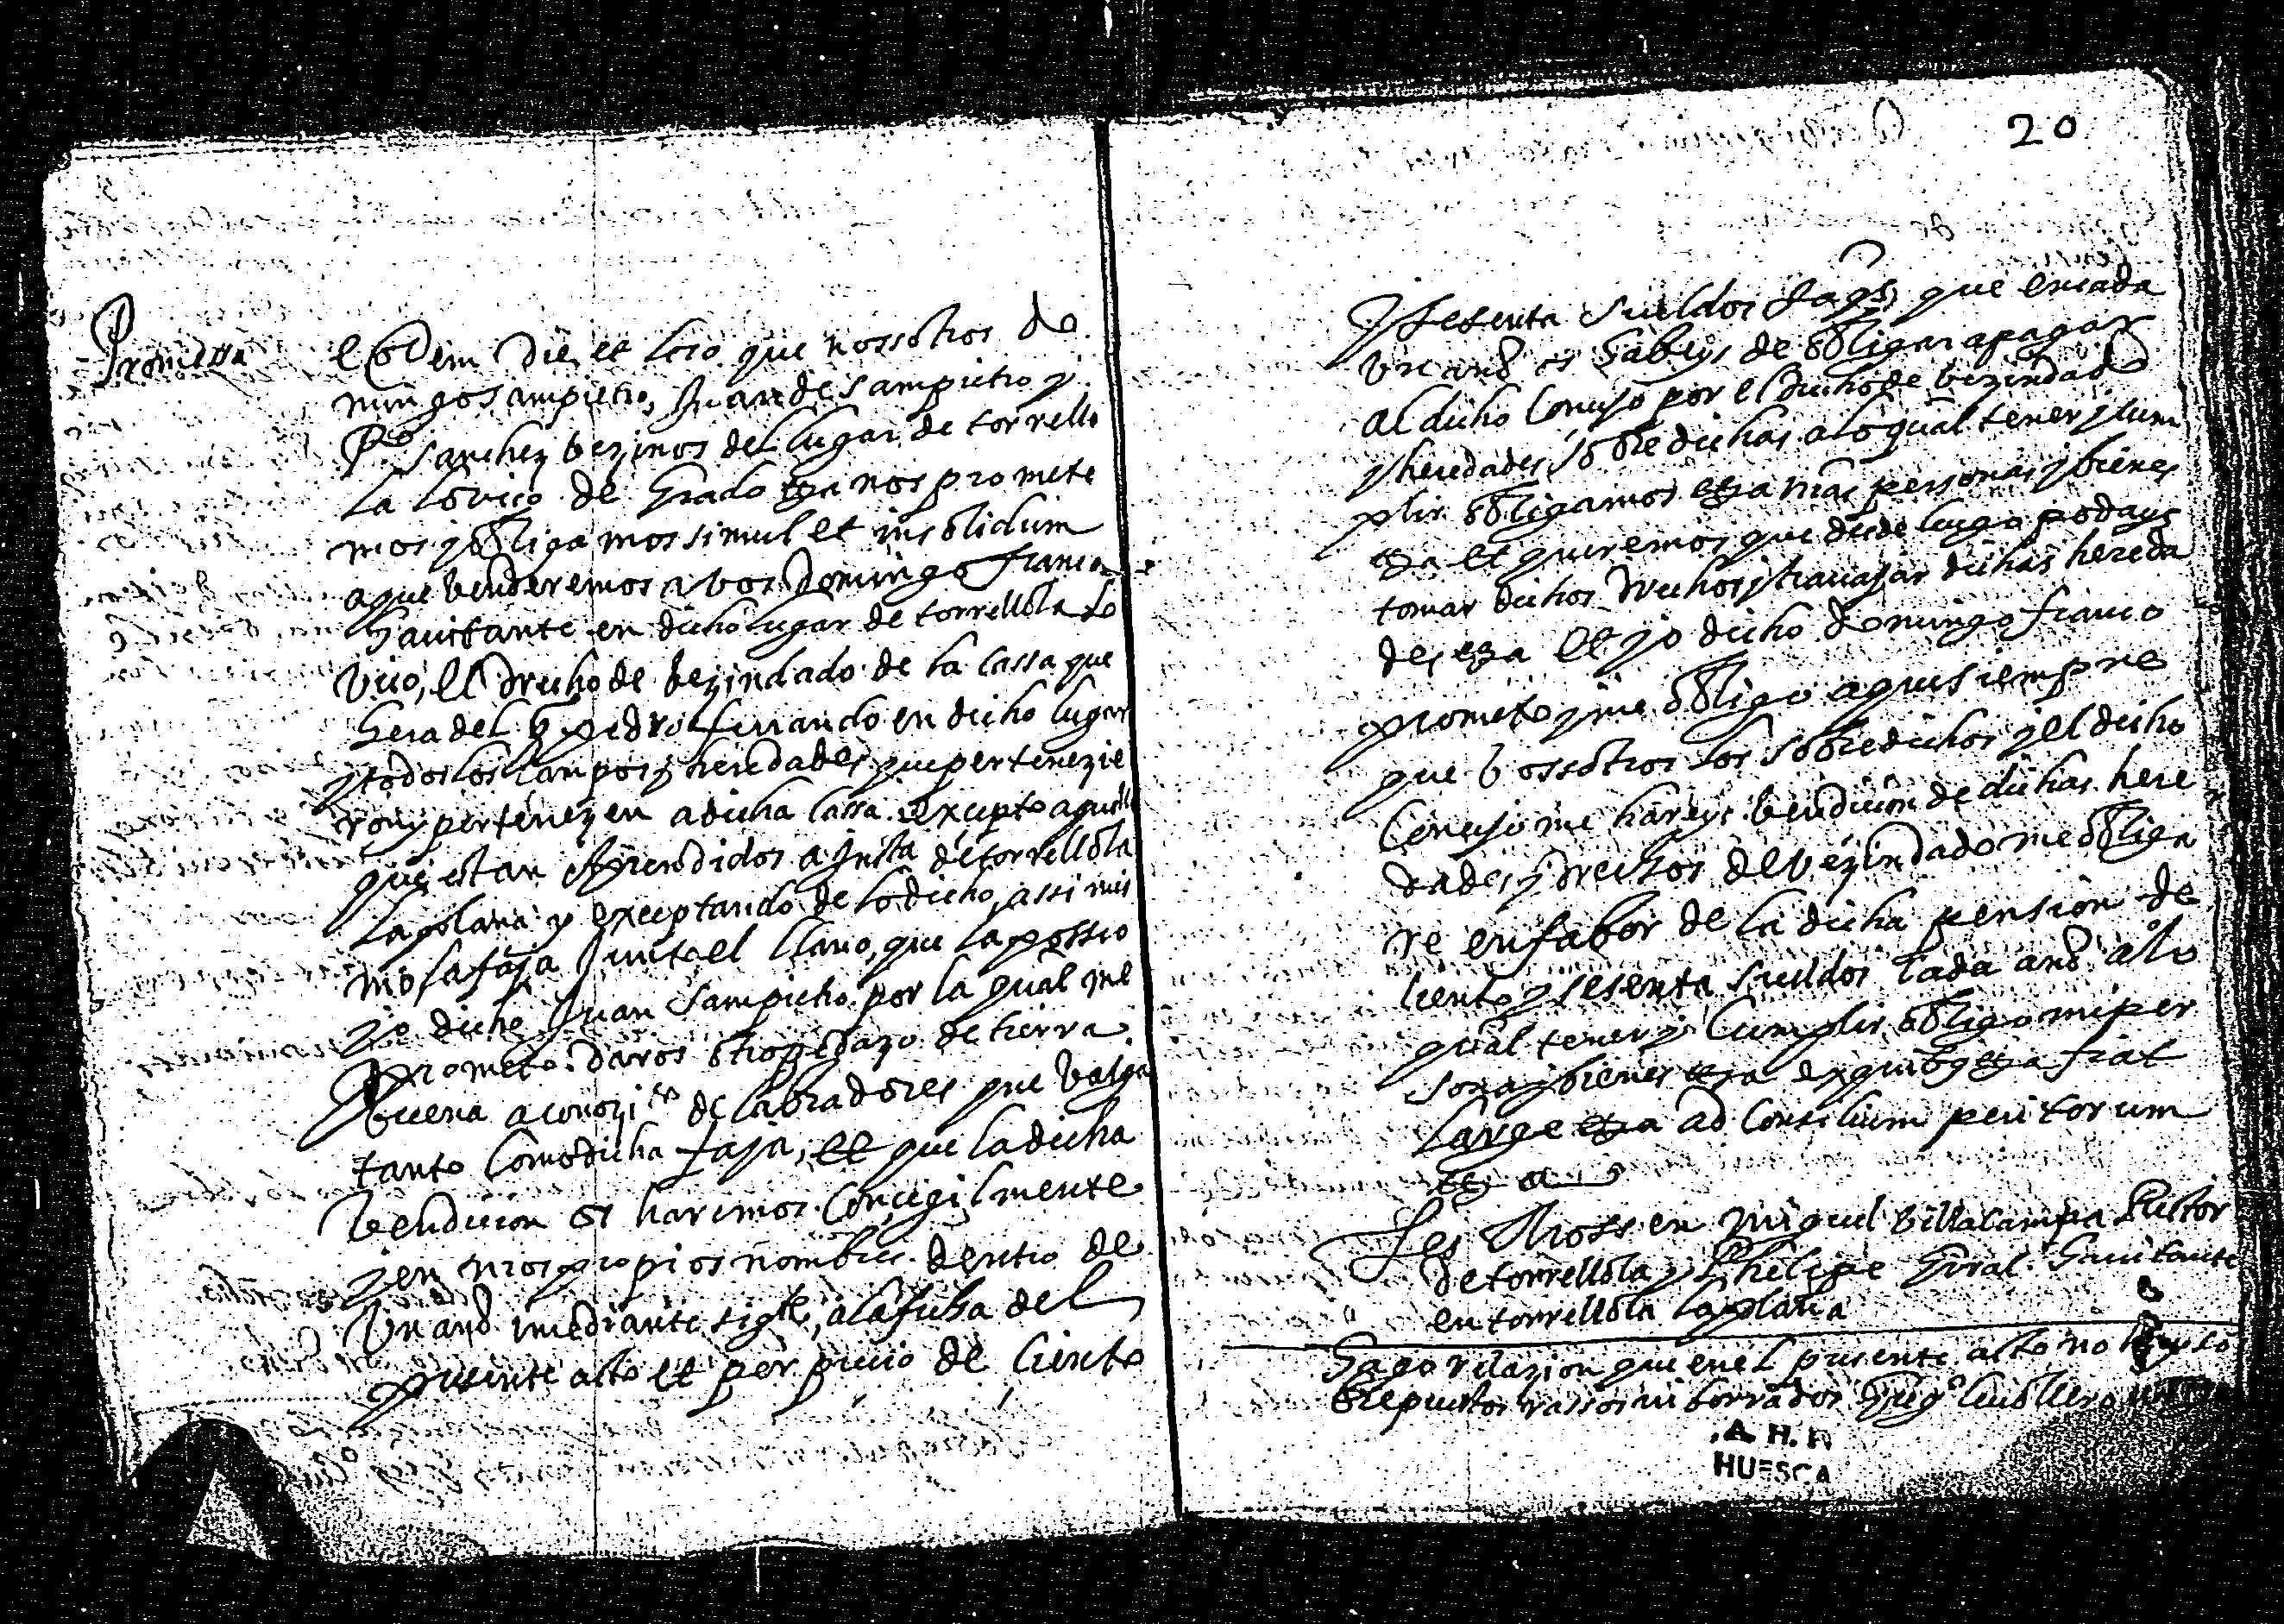 Promessa
eodem die et loco que nossotros do
mingo Sampietro, Juan de Sampietro y
Po Sanchez vezinos del lugar de torrello
la lovico de grado etca nos promete
mos y obligamos simul et insolidum
a que venderemos a vos Domingo franco
havitante en dicho lugar de torrellola lo
vico, el drecho de vezindado de la cassa que
hera del qo pedro ferrando en dicho lugar
y todos los campos y heredades que pertenezie
ron y pertenezen a dicha cassa excepto aquellos
que estan aprendidos a Insta de torrellola
la plana y exceptando de lo dicho, assi mis
mo la faja Junto el llano, que la posseo
yo dicho Juan Sampietro por la qual me
prometo daros otro pedazo de tierra
buena a conozito de labradores que valga
tanto como dicha faja, et que la dicha
vendicion os haremos concegilmente
y en nros propios nombres dentro de
un año imediante sigte, a la fecha del
presente acto et por precio de ciento
20
y sesenta sueldos Jaqs que en cada
un año os habeys de obligar a pagar
al dicho Concejo por el drecho de vezindado
y heredades sobredichas a lo qual tener y cum
plir obligamos etca nras personas y bienes
etca et queremos que desde luego podays
tomar dichos drechos y travajar dichas hereda
des etca et yo dicho Domingo franco
prometo y me obligo a que siempre
que vossotros los sobredichos y el dicho
Concejo me hareys vendicion de dichas here
dades y drechos de vezindado me obliga
re en fabor de la dicha pension de
ciento y sesenta sueldos cada año a lo
qual tener y Cumplir obligo mi per
sona y bienes etca ex quibus etca fiat
large etca ad Consilium peritorum
etca
Tes Mossen Miguel Villacampa Retor
de torrellola y Phelipe Giral havitante
en torrellola la plana
hago relazion que en el presente acto no hay so
brepuestos rassos ni borrados
A. H. P.
HUESCA